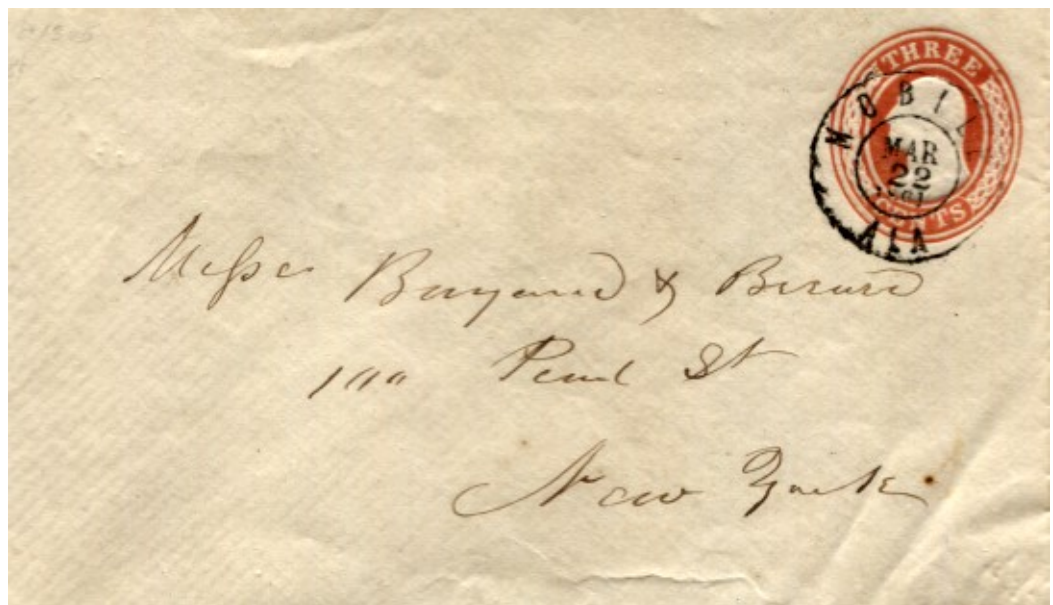 THREE
CENTS
MOBILE
MAR
22
1861
ALA
Messrs Bayard & Berard
100 Pearl St
New York